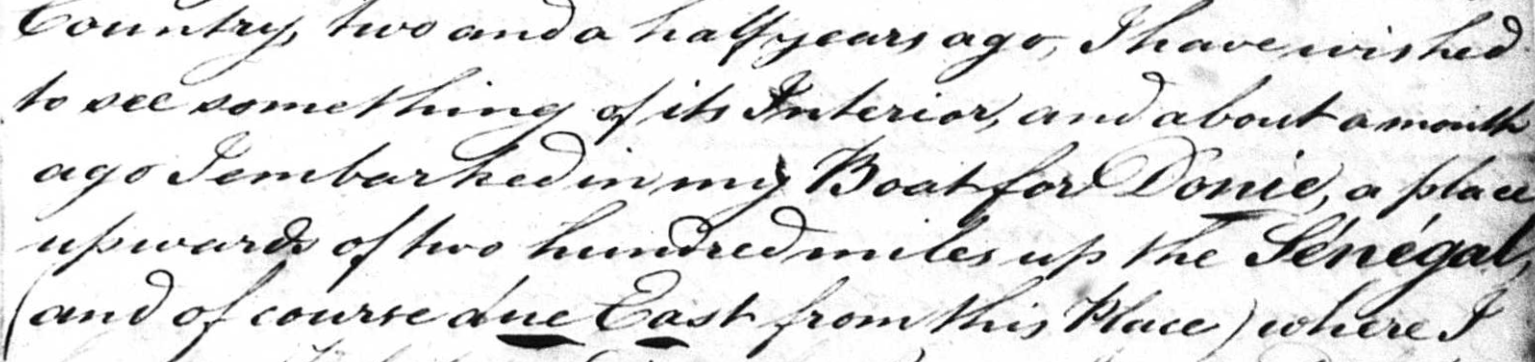 Country, two and a half years ago, I have wished
to see something of its Interior, and about a month
ago I embarked in my Boat for Donié, a place
upwards of two hundred miles up the Sénégal,
(and of course due East from this Place) where I